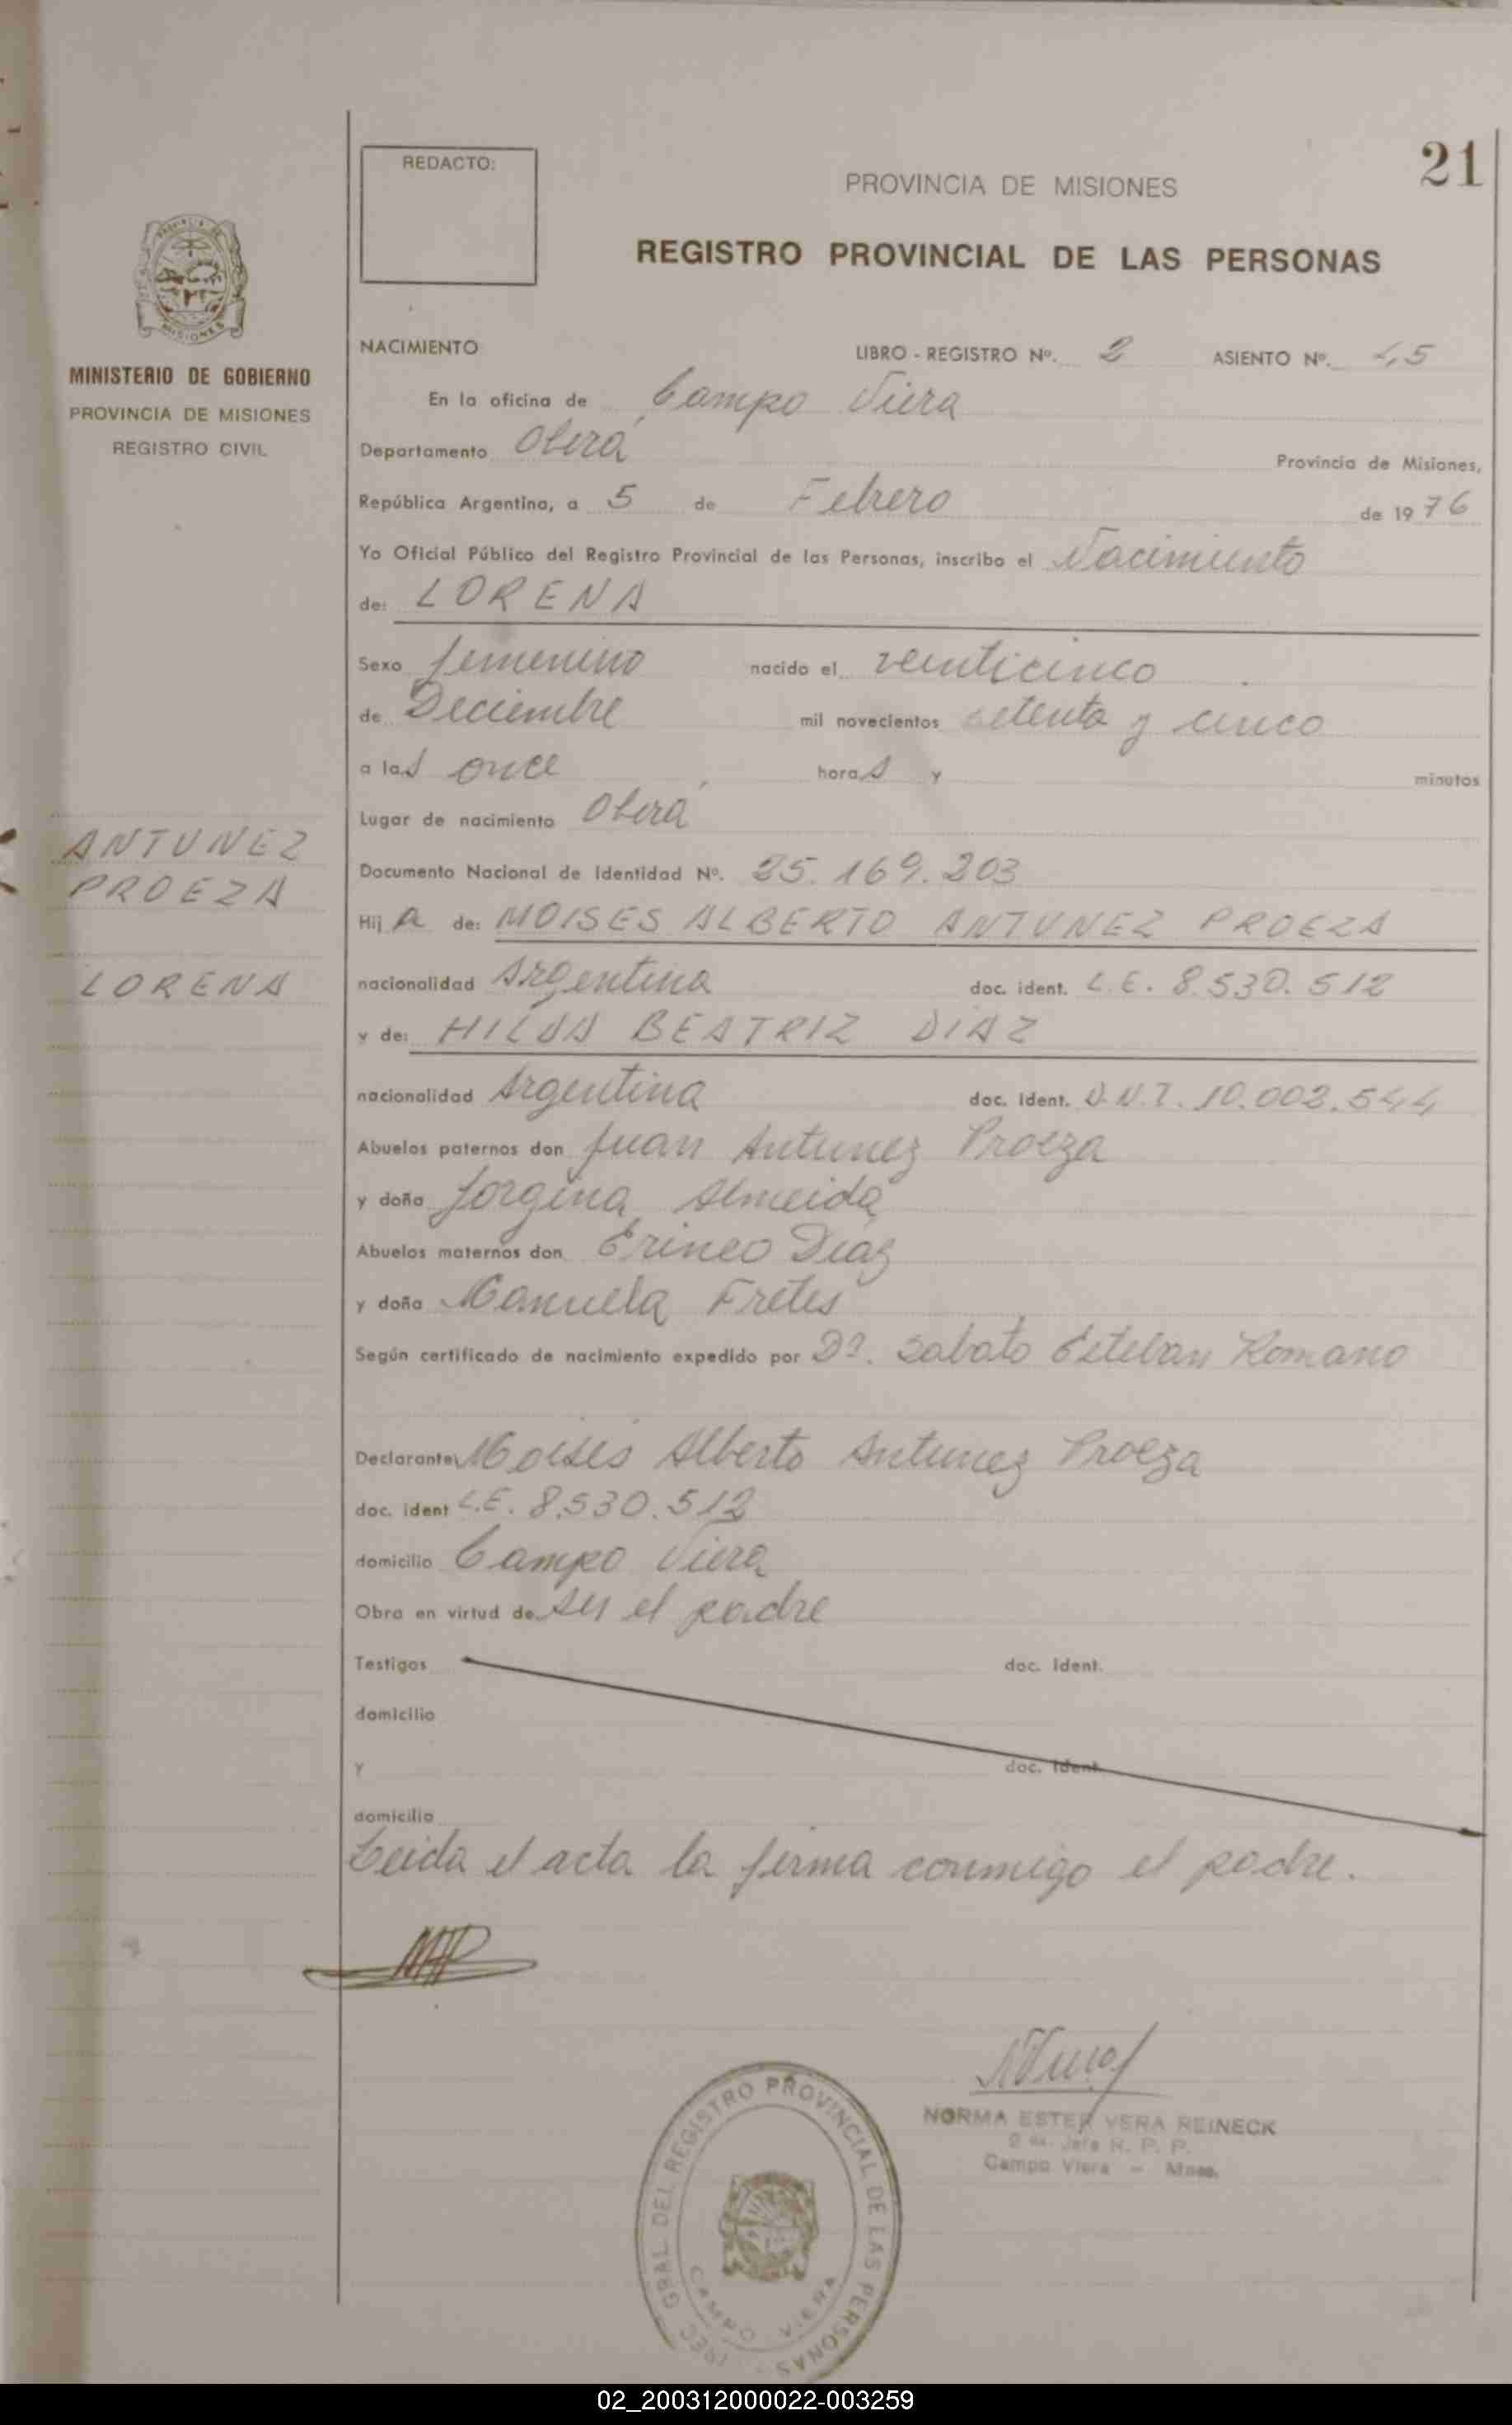 21
REDACTO:
PROVINCIA DE MISIONES
REGISTRO PROVINCIAL DE LAS PERSONAS
MISIONES
MINISTERIO DE GOBIERNO
PROVINCIA DE MISIONES
REGISTRO CIVIL
ANTUNEZ
PROEZA
LORENA
NACIMIENTO LIBRO - REGISTRO Nº. 2 ASIENTO Nº. 45
En la oficina de Campo Viera
Departamento Oberá Provincia de Misiones,
República Argentina, a 5 de Febrero de 1976
Yo Oficial Público del Registro Provincial de las Personas, inscribo el Nacimiento
de: LORENA
Sexo femenino nacido el veinticinco
de Deciembre mil novecientos setenta y cinco
a las once horas y minutos
Lugar de nacimiento Oberá
Documento Nacional de Identidad Nº. 25.169.203
Hija de: MOISES ALBERTO ANTUNEZ PROEZA
nacionalidad Argentina doc. ident. L.E. 8.530.512
y de: HILDA BEATRIZ DIAZ
nacionalidad Argentina doc. ident. D.N.I. 10.002.544
Abuelos paternos don Juan Antunez Proeza
y doña Jorgina Almeida
Abuelos maternos don Erineo Diaz
y doña Manuela Fretes
Según certificado de nacimiento expedido por Dº. Sabato Esteban Romano
Declarante Moises Alberto Antunez Proeza
doc. ident L.E. 8.530.512
domicilio Campo Viera
Obra en virtud de ser el padre
Testigos doc. ident.
domicilio
y doc. ident
domicilio
Leida el acta la firma conmigo el padre.
NORMA ESTER VERA REINECK
Jefe R. P. P.
Campo Viera - Mnes.
GRAL DEL REGISTRO PROVINCIAL DE LAS PERSONAS
CAMPO VIERA
02_200312000022-003259